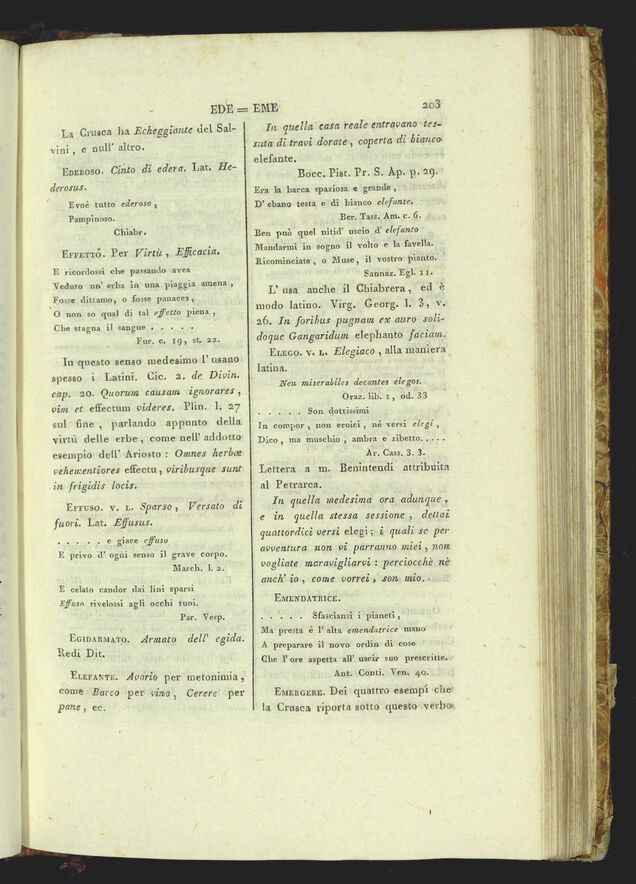 EDE = EME
203
La Crusca ha Echeggiante del Sal-
vini, e null' altro.
EDEROSO. Cinto di edera. Lat. He-
derosus.
Evoè tutto ederoso,
Pampinoso.
Chiabr.
EFFETTO. Per Virtù, Efficacia.
E ricordossi che passando avea
Veduto un' erba in una piaggia amena,
Fosse dittamo, o fosse panacea,
O non so qual di tal effetto piena,
Che stagna il sangue . . . . .
Fur. c. 19, st. 22.
In questo senso medesimo l' usano
spesso i Latini. Cic. 2. de Divin.
cap. 20. Quorum causam ignorares,
vim et effectum videres. Plin. l. 27
sul fine, parlando appunto della
virtù delle erbe, come nell' addotto
esempio dell' Ariosto: Omnes herbæ
vehementiores effectu, viribusque sunt
in frigidis locis.
EFFUSO. v. L. Sparso, Versato di
fuori. Lat. Effusus.
. . . . . e giace effuso
E privo d' ogni senso il grave corpo.
March. l. 2.
E celato candor dai lini sparsi
Effuso rivelossi agli occhi tuoi.
Par. Vesp.
EGIDARMATO. Armato dell' egida.
Redi Dit.
ELEFANTE. Avorio per metonimia,
come Bacco per vino, Cerere per
pane, ec.
In quella casa reale entravano tes-
suta di travi dorate, coperta di bianco
elefante.
Bocc. Pist. Pr. S. Ap. p. 29.
Era la barca spaziosa e grande,
D' ebano testa e di bianco elefante.
Ber. Tass. Am. c. 6.
Ben può quel nitid' uscio d' elefanto
Mandarmi in sogno il volto e la favella.
Ricominciate, o Muse, il vostro pianto.
Sannaz. Egl. 11.
L' usa anche il Chiabrera, ed è
modo latino. Virg. Georg. l. 3, v.
26. In foribus pugnam ex auro soli-
doque Gangaridum elephanto faciam.
ELEGO. v. L. Elegiaco, alla maniera
latina.
Neu miserabiles decantes elegos.
Oraz. lib. 1, od. 33
. . . . . Son dottissimi
In compor, non eroici, nè versi elegi,
Dico, ma muschio, ambra e zibetto.....
Ar. Cass. 3. 3.
Lettera a m. Benintendi attribuita
al Petrarca.
In quella medesima ora adunque,
e in quella stessa sessione, dettai
quattordici versi elegi; i quali se per
avventura non vi parranno miei, non
vogliate maravigliarvi: perciocchè nè
anch' io, come vorrei, son mio.
EMENDATRICE.
. . . . . Sfasciansi i pianeti,
Ma presta è l' alta emendatrice mano
A preparare il novo ordin di cose
Che l' ore aspetta all' uscir suo prescritte.
Ant. Conti. Ven. 40.
EMERGERE. Dei quattro esempi che
la Crusca riporta sotto questo verbo